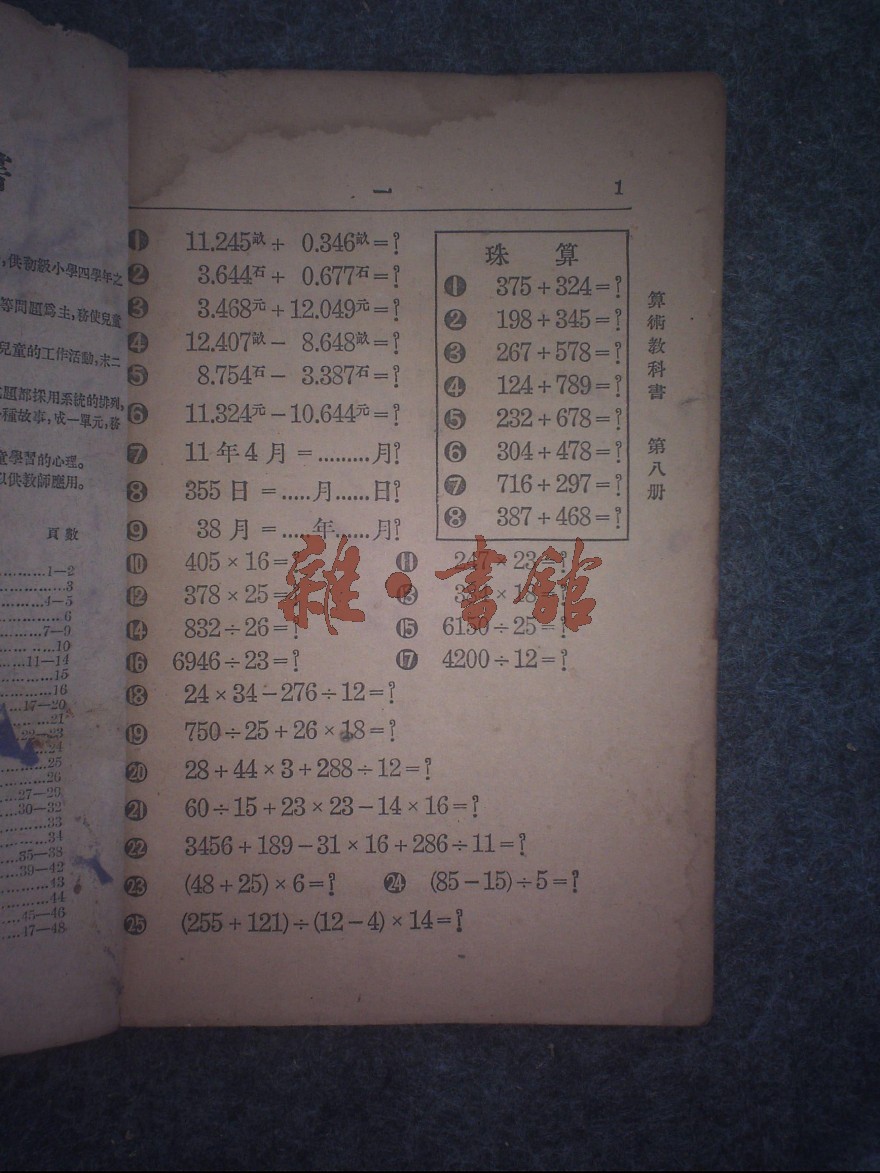 書
,供初級小學四學年之
等問題爲主,務使兒童
兒童的工作活動,末二
題都採用系統的排列,
種故事,成一單元,務
童學習的心理。
以供教師應用。
頁數
1—2
3
4—5
6
7—9
10
11—14
15
16
17—20
21
22—23
24
25
26
27—29
30—32
33
34
35—38
39—42
43
44
45—46
47—48
一 1
❶ 11.245畝+ 0.346畝=?
❷ 3.644石+ 0.677石=?
❸ 3.468元+12.049元=?
❹ 12.407畝- 8.648畝=?
❺ 8.754石- 3.387石=?
❻ 11.324元-10.644元=?
❼ 11年4月=.........月?
❽ 355日=.....月......日?
❾ 38月=....年......月?
❿ 405×16=?
⓫ 247×23=?
⓬ 378×25=?
⓭ ×18=?
⓮ 832÷26=?
⓯ 6150÷25=?
⓰ 6946÷23=?
⓱ 4200÷12=?
⓲ 24×34-276÷12=?
⓳ 750÷25+26×18=?
⓴ 28+44×3+288÷12=?
㉑ 60÷15+23×23-14×16=?
㉒ 3456+189-31×16+286÷11=?
㉓ (48+25)×6=? ㉔ (85-15)÷5=?
㉕ (255+121)÷(12-4)×14=?
珠算
❶ 375+324=?
❷ 198+345=?
❸ 267+578=?
❹ 124+789=?
❺ 232+678=?
❻ 304+478=?
❼ 716+297=?
❽ 387+468=?
算術教科書 第八册
雜·書館